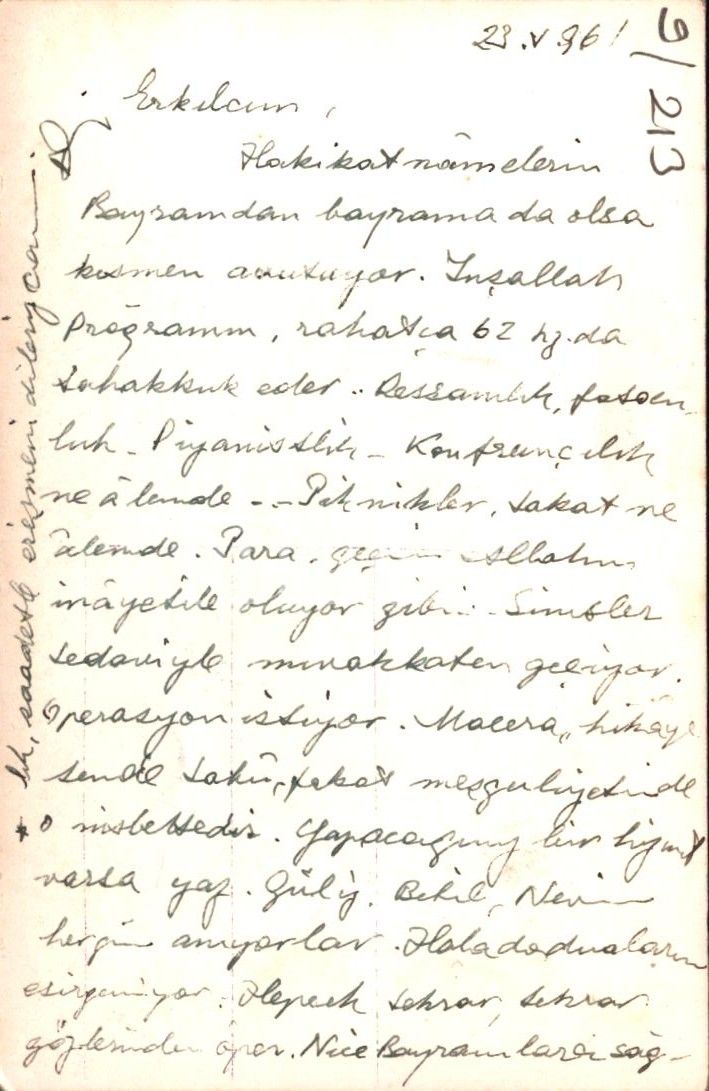 23.V.961
9/213
Erkılcım,
Hakikatnâmelerin
Bayramdan bayrama da olsa
kısmen avutuyor. İnşallah
Programın, rahatça 62 hz.da
tahakkuk eder.. Ressamlık,
luk - Piyanistlik - 
ne âlemde -.- Piknikler, takat ne
âlemde. Para, Allahın
inâyetile oluyor gibi... Sinüsler
tedaviyle muvakkaten geçiyor.
Operasyon istiyor. Macera, hikâye
sende fakat meşguliyetin de
o nisbettedir. Yapacağımız bir hizmet
varsa yaz. Güliz, Betil, Nevin
hergün anıyorlar. Hala da dualarını
esirgemiyor. Hepsek tekrar, tekrar
gözlerinden öper. Nice Bayramlara sağ-
* lık, saadetle erişmeni dileriz canım.